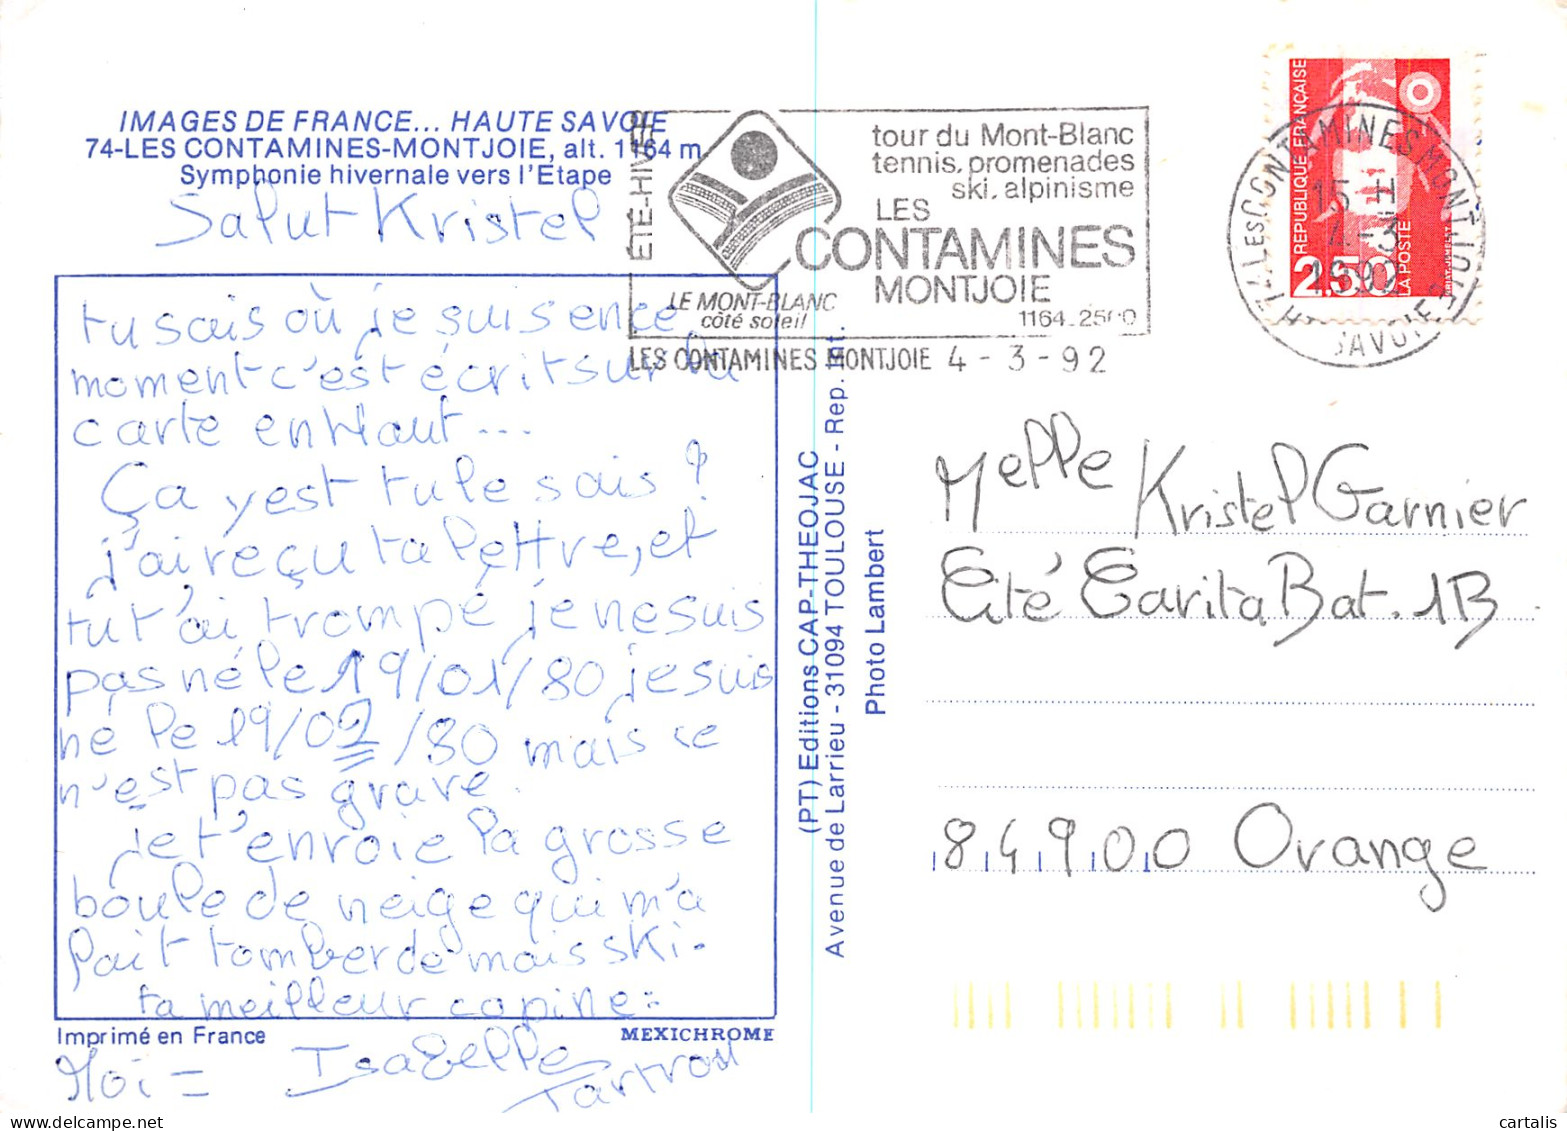 IMAGES DE FRANCE... HAUTE SAVOIE
74-LES CONTAMINES-MONTJOIE, alt. 1164 m
Symphonie hivernale vers l'Etape
Salut Kristel
tu sais où je suis en ce
moment c'est écrit sur la
carte en Haut...
Ça y est tu le sais ?
j'ai reçu ta lettre, et
tu t'ai trompé, je ne suis
pas né le 19/01/80 je suis
né le 19/02/80 mais ce
n'est pas grave.
Je t'envoie la grosse
boule de neige qui m'a
fait tomber de mais ski.
ta meilleur copine :
Imprimé en France
MEXICHROME
Moi = Isabelle
Tartrou
ÉTÉ-HIVER
tour du Mont-Blanc
tennis. promenades
ski. alpinisme
LES
CONTAMINES
MONTJOIE
1164-2500
LE MONT-BLANC
côté soleil
LES CONTAMINES MONTJOIE 4 - 3 - 92
(PT) Editions CAP-THEOJAC
Avenue de Larrieu - 31094 TOULOUSE - Rep. Int.
Photo Lambert
REPUBLIQUE FRANÇAISE
2,50
LA POSTE
LES CONTAMINES MONTJOIE
15 H
4-3
1992
HTE SAVOIE
Melle Kristel Garnier
Cité Carita Bat. 1B
84900 Orange
cartalis